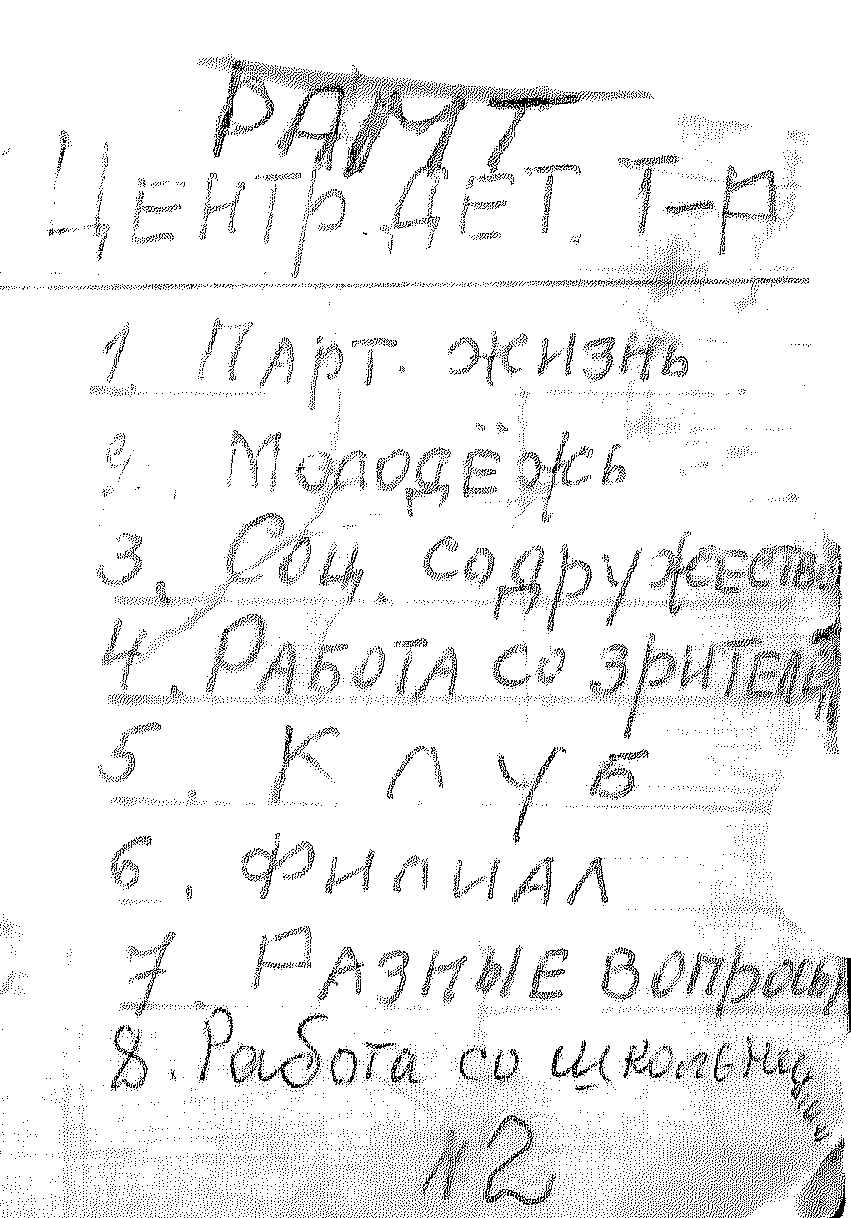 РАМТ
Центр. дет. т-р
1 Парт. жизнь
2. Молодёжь
3. Соц. содружество
4. Работа со зрител
5. Клуб
6. Филиал
7. Разные вопросы
8. Работа со школьни
12